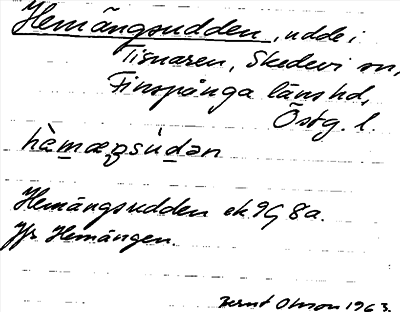 Hemängsudden, udde i
Tisnaren, Skedevi sn,
Finspånga läns hd,
Östg. l.
hæ̀mæŋsùdən
Hemängsudden ek 9G 8a.
Jfr Hemängen.
Bernt Olsson 1963.